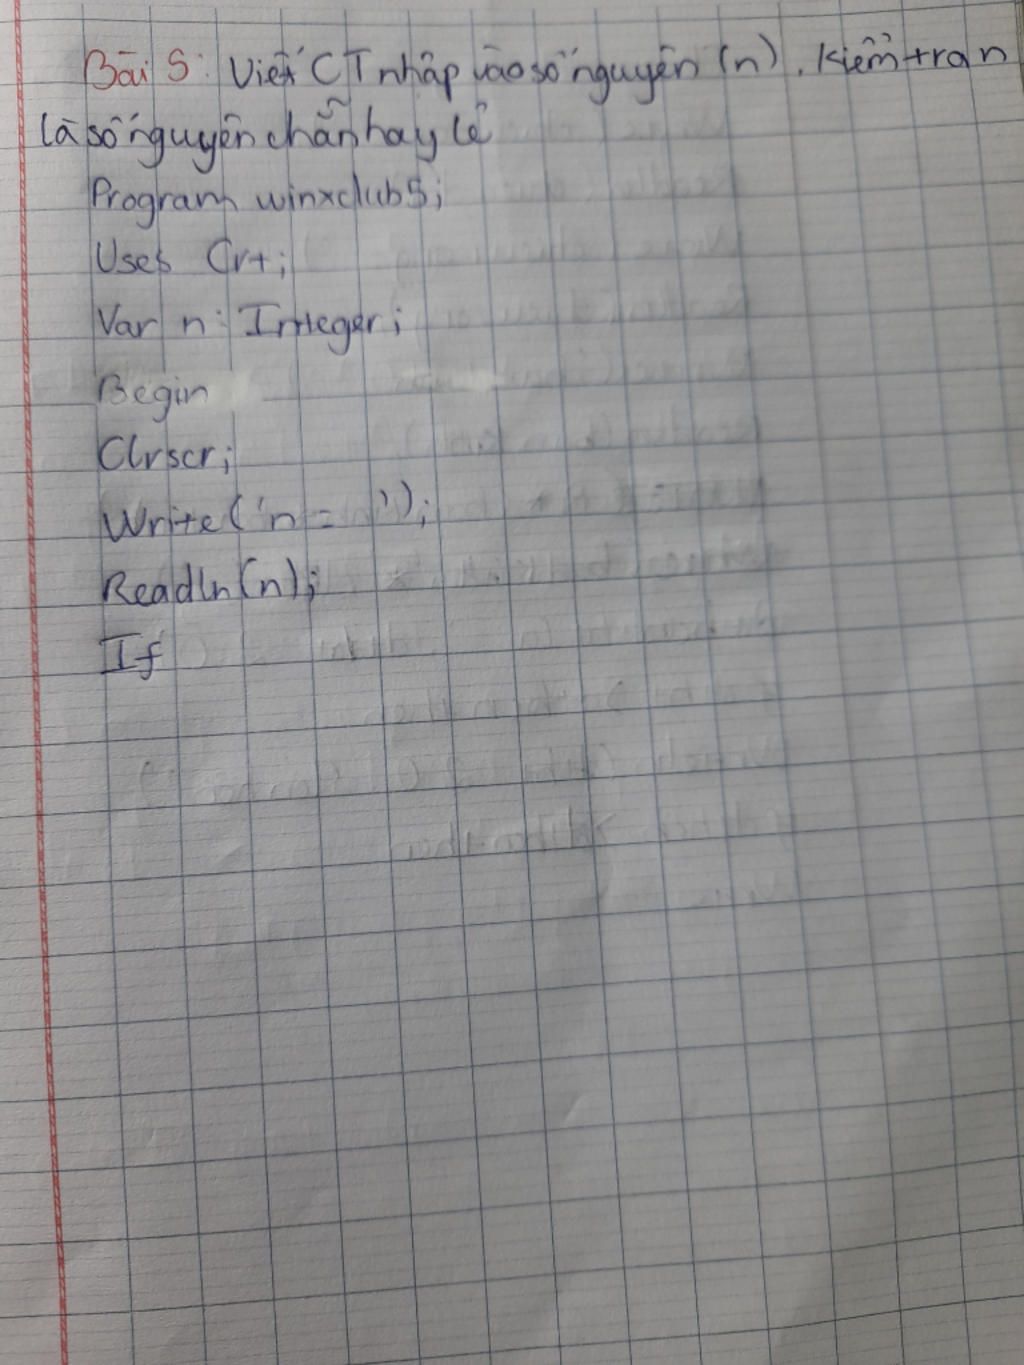 Bài 5: Viết CT nhập vào số nguyên (n). Kiểm tra n
là số nguyên chẵn hay lẻ
Program winxclub5;
Uses Crt;
Var n: Integer;
Begin
Clrscr;
Write('n = ');
Readln(n);
If